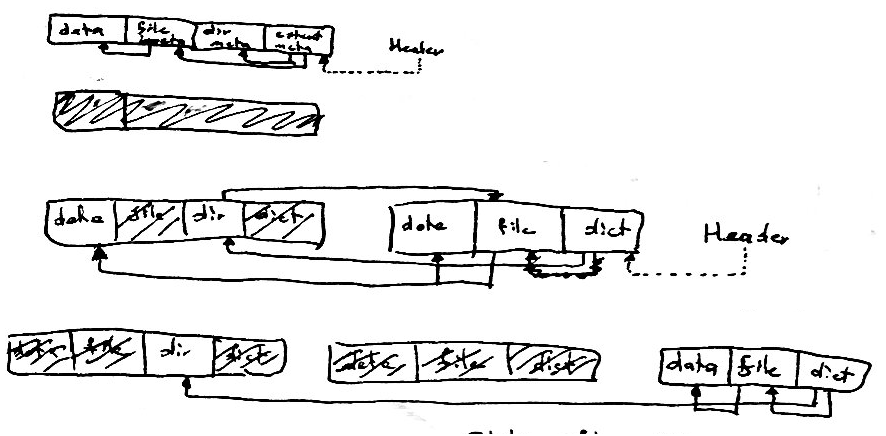 data file meta dir meta extent meta
Header
data file dir dict
data file dict
Header
data file dir dict
data file dict
data file dict